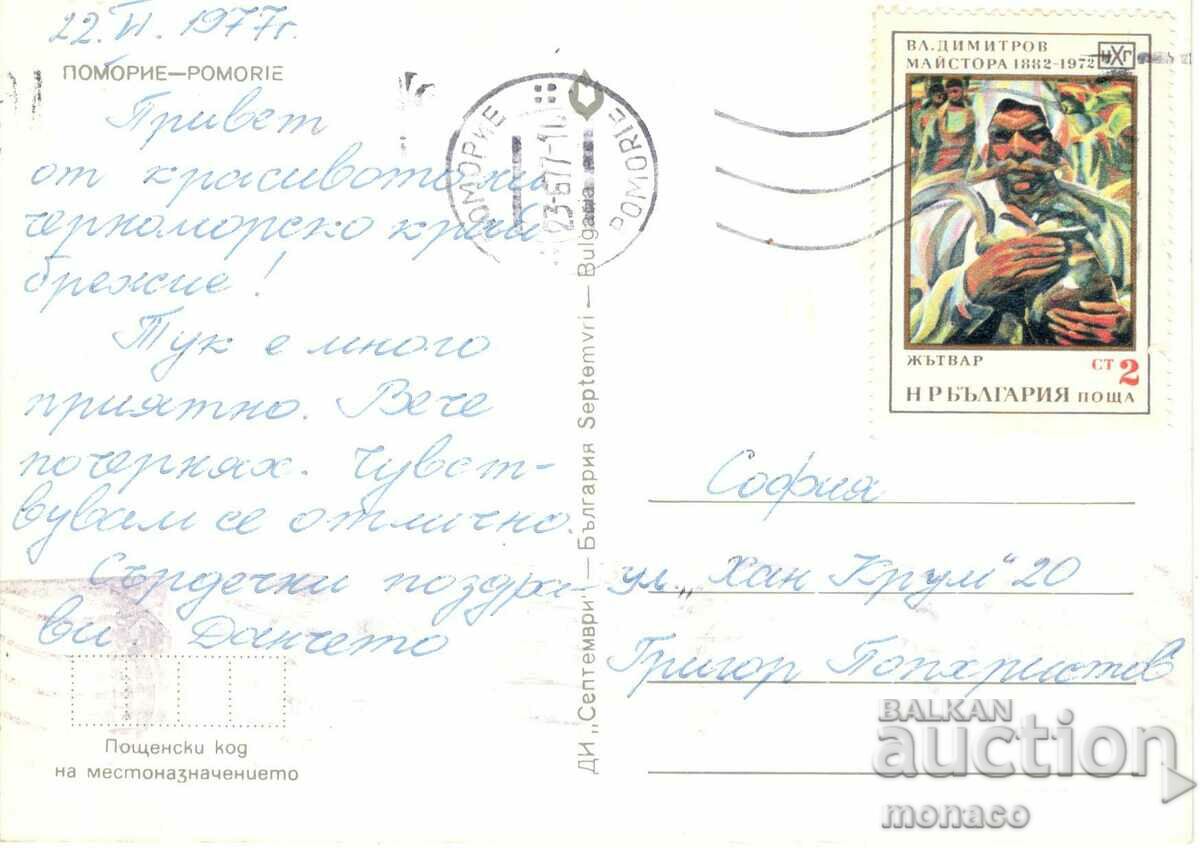 22.VI.1977г.
ПОМОРИЕ—POMORIE
Привет
от красивото ни
черноморско край
брежие!
Тук е много
приятно. Вече
почернях. Чувст-
вувам се отлично.
Сърдечни поздра-
ви. Данчето
Пощенски код
на местоназначението
ДИ „Септември" — България Septemvri — Bulgaria
ПОМОРИЕ
POMORIE
23-677-1
ВЛ.ДИМИТРОВ
МАЙСТОРА 1882-1972
НХГ
ЖЪТВАР
СТ 2
НР БЪЛГАРИЯ ПОЩА
София
ул. „Хан Крум" 20
Григор Попхристов
BALKAN
auction
monaco